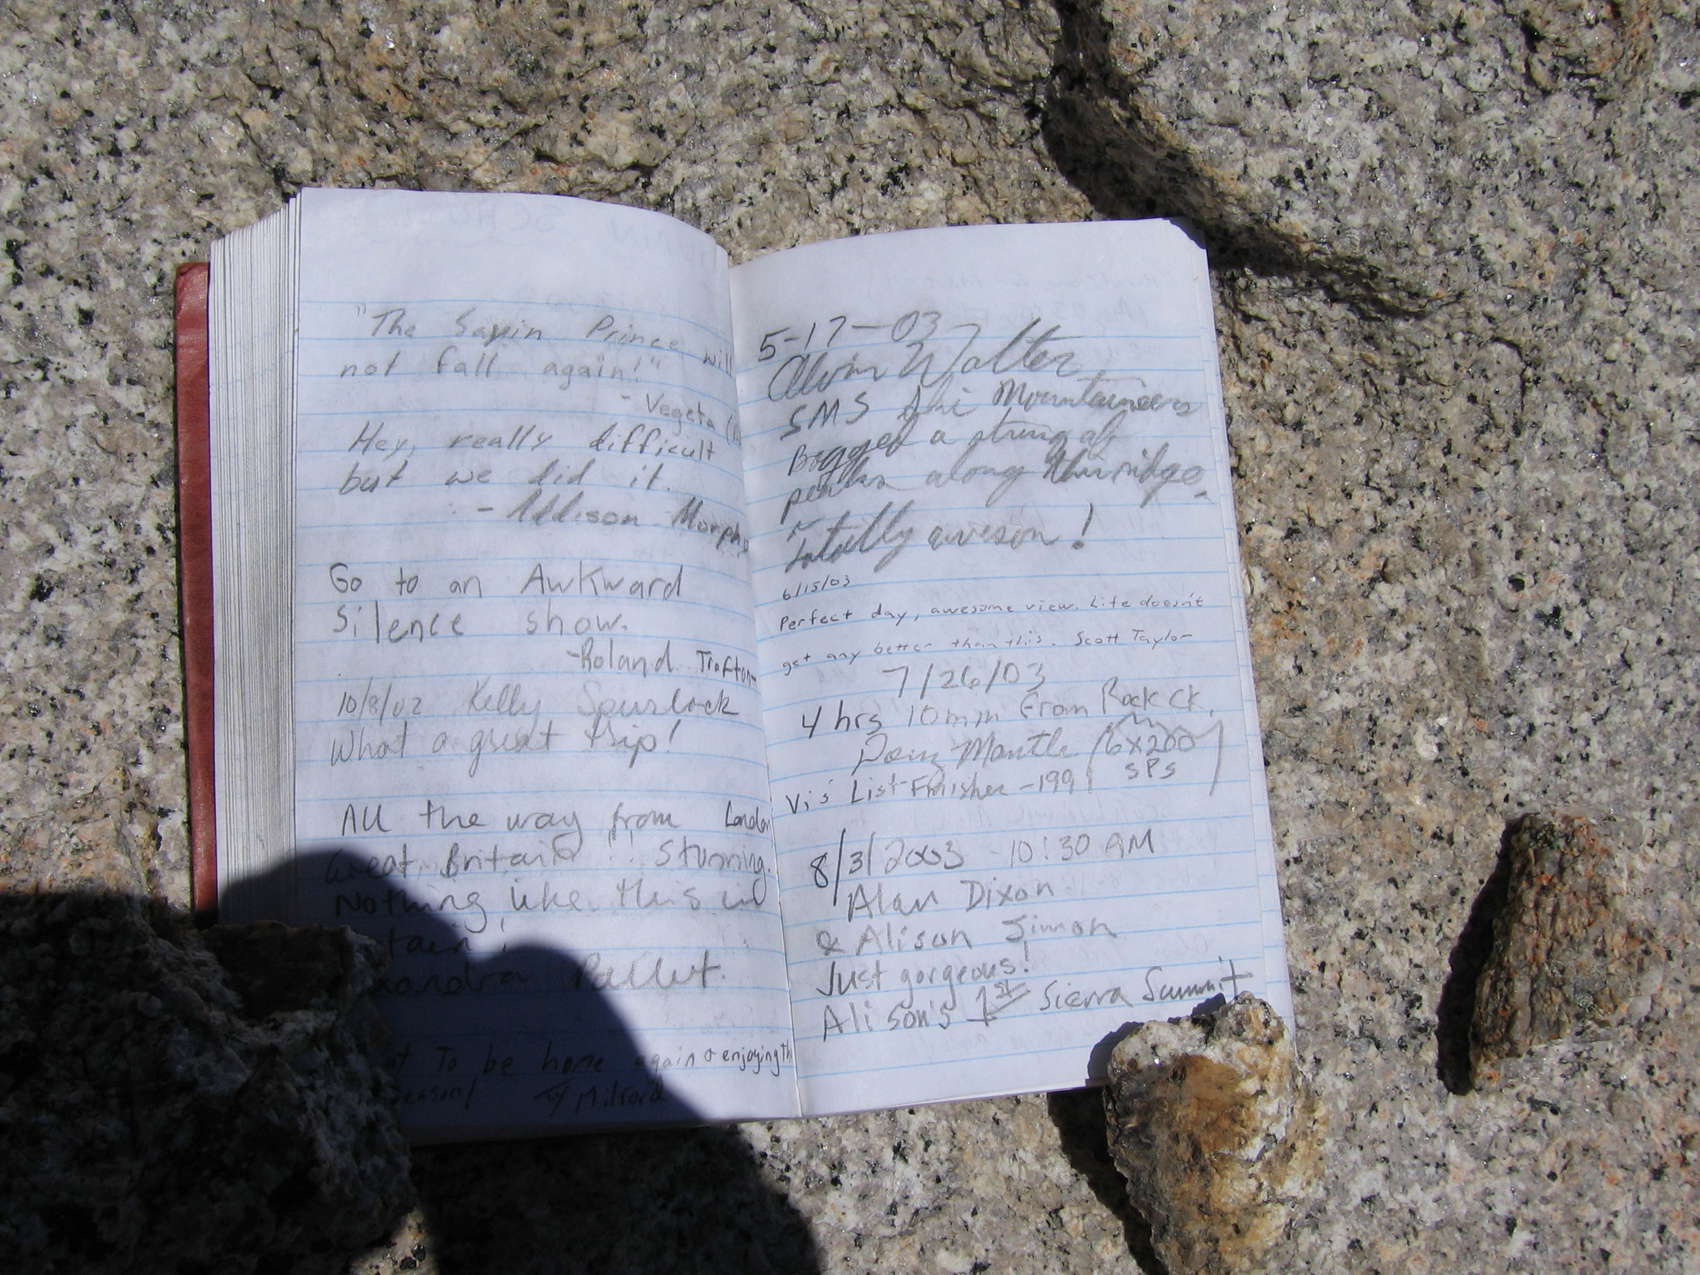 "The Sayin Prince will
not fall again!"
- Vegeta
Hey, really difficult
but we did it.
- Addison Morph
Go to an Awkward
Silence show.
-Roland Trafton
10/8/02 Kelly Spurlock
What a great trip!
All the way from London
Great Britain! Stunning.
Nothing like this in
tain!
xandra Pallut.
To be home again & enjoying th
eason! Milford
5-17-03
Alvin Walter
SMS Ski Mountaineers
Bagged a string of
peaks along this ridge.
Totally awesom!
6/15/03
Perfect day, awesome view. Life doesn't
get any better than this. Scott Taylor
7/26/03
4 hrs 10 min From Rock Ck.
Doug Mantle (6x200
SPS)
Vi's List Finisher -1991
8/3/2003 10:30 AM
Alan Dixon
& Alison Simon
Just gorgeous!
Alison's 1st Sierra Summit